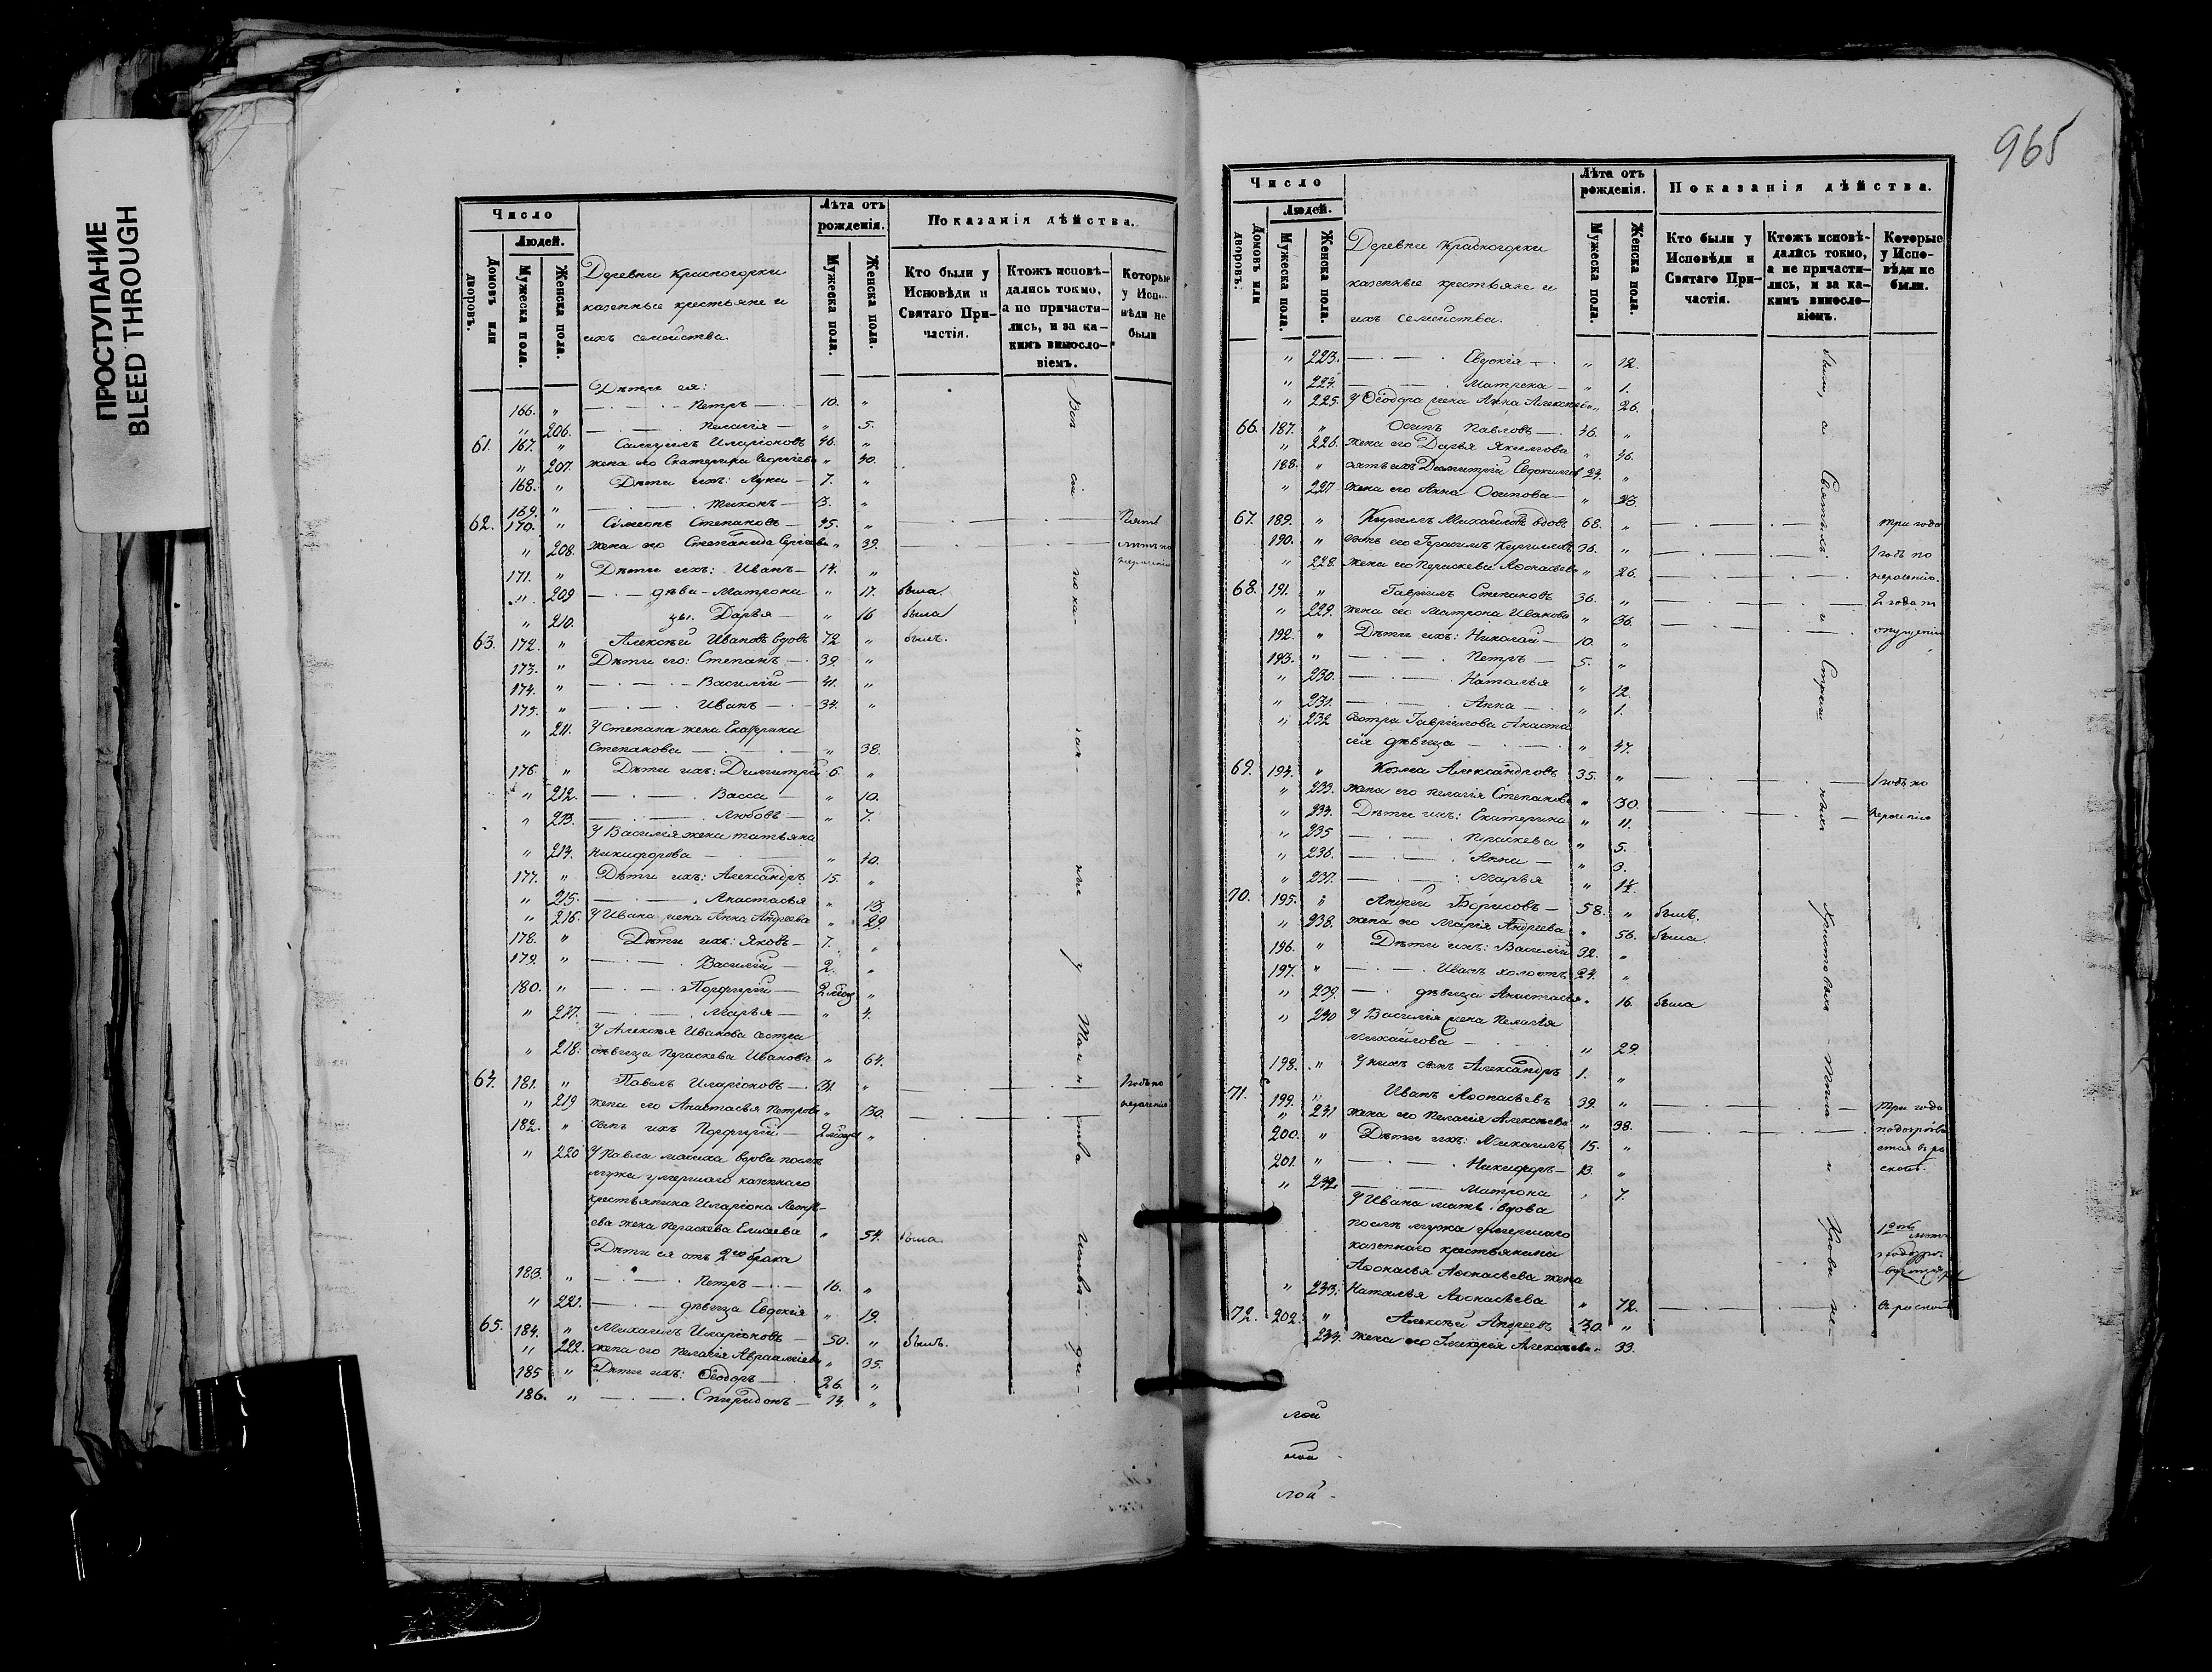 ПРОСТУПАНИЕ
BLEED THROUGH
Число
Людей.
Домовъ или дворовъ.
Мужеска пола.
Женска пола.
Деревни Красногорки
казенные крестьяне и
ихъ семейства.
Лѣта отъ рожденія.
Мужеска пола.
Женска пола.
Показанія дѣйства.
Кто были у Исповѣди и Святаго Причастія.
Ктожъ исповѣдались токмо, а не причастились, и за какимъ винословіемъ.
Которые у Испо-вѣди не были
Дѣти ея:
166. " Петръ 10. "
" 206. Пелагія " 5.
61. 167. " Самуилъ Иларіоновъ 46. "
" 207. жена его Екатерина Георгіева " 40.
168. " Дѣти ихъ: Лука 7. "
169. " Тихонъ 3. "
62. 170. " Симеонъ Степановъ 45. "
" 208 жена его Степанида Сергѣева " 39.
171. " Дѣти ихъ: Иванъ 14. "
" 209 дѣви- Матрона " 17. была.
" 210. цы. Дарья " 16 была
63. 172. " Алексѣй Ивановъ вдовъ 72 " былъ.
173. " Дѣти его: Степанъ 39. "
174. " Василій 41. "
175. " Иванъ 34. "
" 211. У Степана жена Екатерина
Степанова " 38.
176. " Дѣти ихъ: Димитрій 6. "
" 212. Васса " 10.
" 213. Любовь " 7.
У Василія жена Татьяна
" 214. Никифорова " 40.
177. " Дѣти ихъ: Александръ 15. "
" 215. Анастасья " 13.
" 216. У Ивана жена Анна Андреева " 29.
178. " Дѣти ихъ: Яковъ 7. "
179. " Василій 2. "
180. " Порфирій "
" 217. Марья " 4.
У Алексѣя Иванова сестра
" 218. дѣвица Параскева Иванова " 64.
64. 181. " Павелъ Иларіоновъ 31. " 1 годъ по
" 219 жена его Анастасья Петрова " 30. нераченію
182. " сынъ ихъ Порфирій "
" 220 У Павла мачиха вдова послѣ
мужа умершаго казеннаго
крестьянина Иларіона
жена Параскева Елисеева " 54. была.
Дѣти ея отъ 2го брака
183. " Петръ 16. "
" 221. дѣвица Евдокія " 19.
65. 184. " Михаилъ Иларіоновъ 50. " былъ.
" 222. жена его Пелагія Аврааміева " 35.
185 " Дѣти ихъ: Ѳеодоръ 26. "
186. " Спиридонъ 14. "
965
Число
Людей.
Домовъ или дворовъ.
Мужеска пола.
Женска пола.
Деревни Красногорки
казенные крестьяне и
ихъ семейства.
Лѣта отъ рожденія.
Мужеска пола.
Женска пола.
Показанія дѣйства.
Кто были у Исповѣди и Святаго Причастія.
Ктожъ исповѣдались токмо, а не причастились, и за какимъ винословіемъ.
Которые у Исповѣди не были.
" 223. Евдокія " 12.
" 224. Матрена " 1.
" 225. У Ѳеодора жена Анна Алексѣева " 26.
66. 187. " Осипъ Павловъ 46. "
" 226. жена его Дарья Якимова " 46.
188. " зять ихъ Димитрій Евдокимовъ 24. "
" 227 жена его Анна Осипова " 23.
67. 189. " Кириллъ Михайловъ вдовъ 68. " три года
190. " сынъ его Герасимъ Кирилловъ 36. " 1 годъ по
" 228. жена его Параскева Аѳонасьева " 26. нераченію.
68. 191. " Гавріилъ Степановъ 36. " 2 года
" 229. жена его Матрона Иванова " 36. опущенію
192. " Дѣти ихъ: Николай 10. "
193. " Петръ 5. "
" 230. Наталья " 12.
" 231. Анна " 1.
" 232 сестра Гавріилова Анаста
сія дѣвица " 47.
69. 194. " Козма Александровъ 35. " 1 годъ по
" 233. жена его Пелагія Степанова " 30. нераченію
" 234. Дѣти ихъ: Екатерина " 11.
" 235 Параскева " 5.
" 236. Анна " 3.
" 237. Марья "
70. 195. " Андрей Борисовъ 58. " былъ.
" 238. жена его Марія Андреева " 56. была.
196. " Дѣти ихъ: Василій 32. "
197. " Иванъ холостъ 24. "
" 239. дѣвица Анастасья " 16. была
" 240 У Василія жена Пелагія
Михайлова " 29.
198. " У нихъ сынъ Александръ 1. "
71. 199. " Иванъ Аѳонасьевъ 39. " три года
" 231 жена его Пелагія Алексѣева " 38.
200. " Дѣти ихъ: Михаилъ 15. "
201. " Никифоръ 13. "
" 232. Матрона " 7.
У Ивана мать вдова
послѣ мужа умершаго
казеннаго крестьянина
Аѳонасья Аѳонасьева жена
" 233. Наталья Аѳонасьева " 72.
72. 202. " Алексѣй Андреевъ 30. "
234. жена его Алексѣева 33.
лой
лой
лой